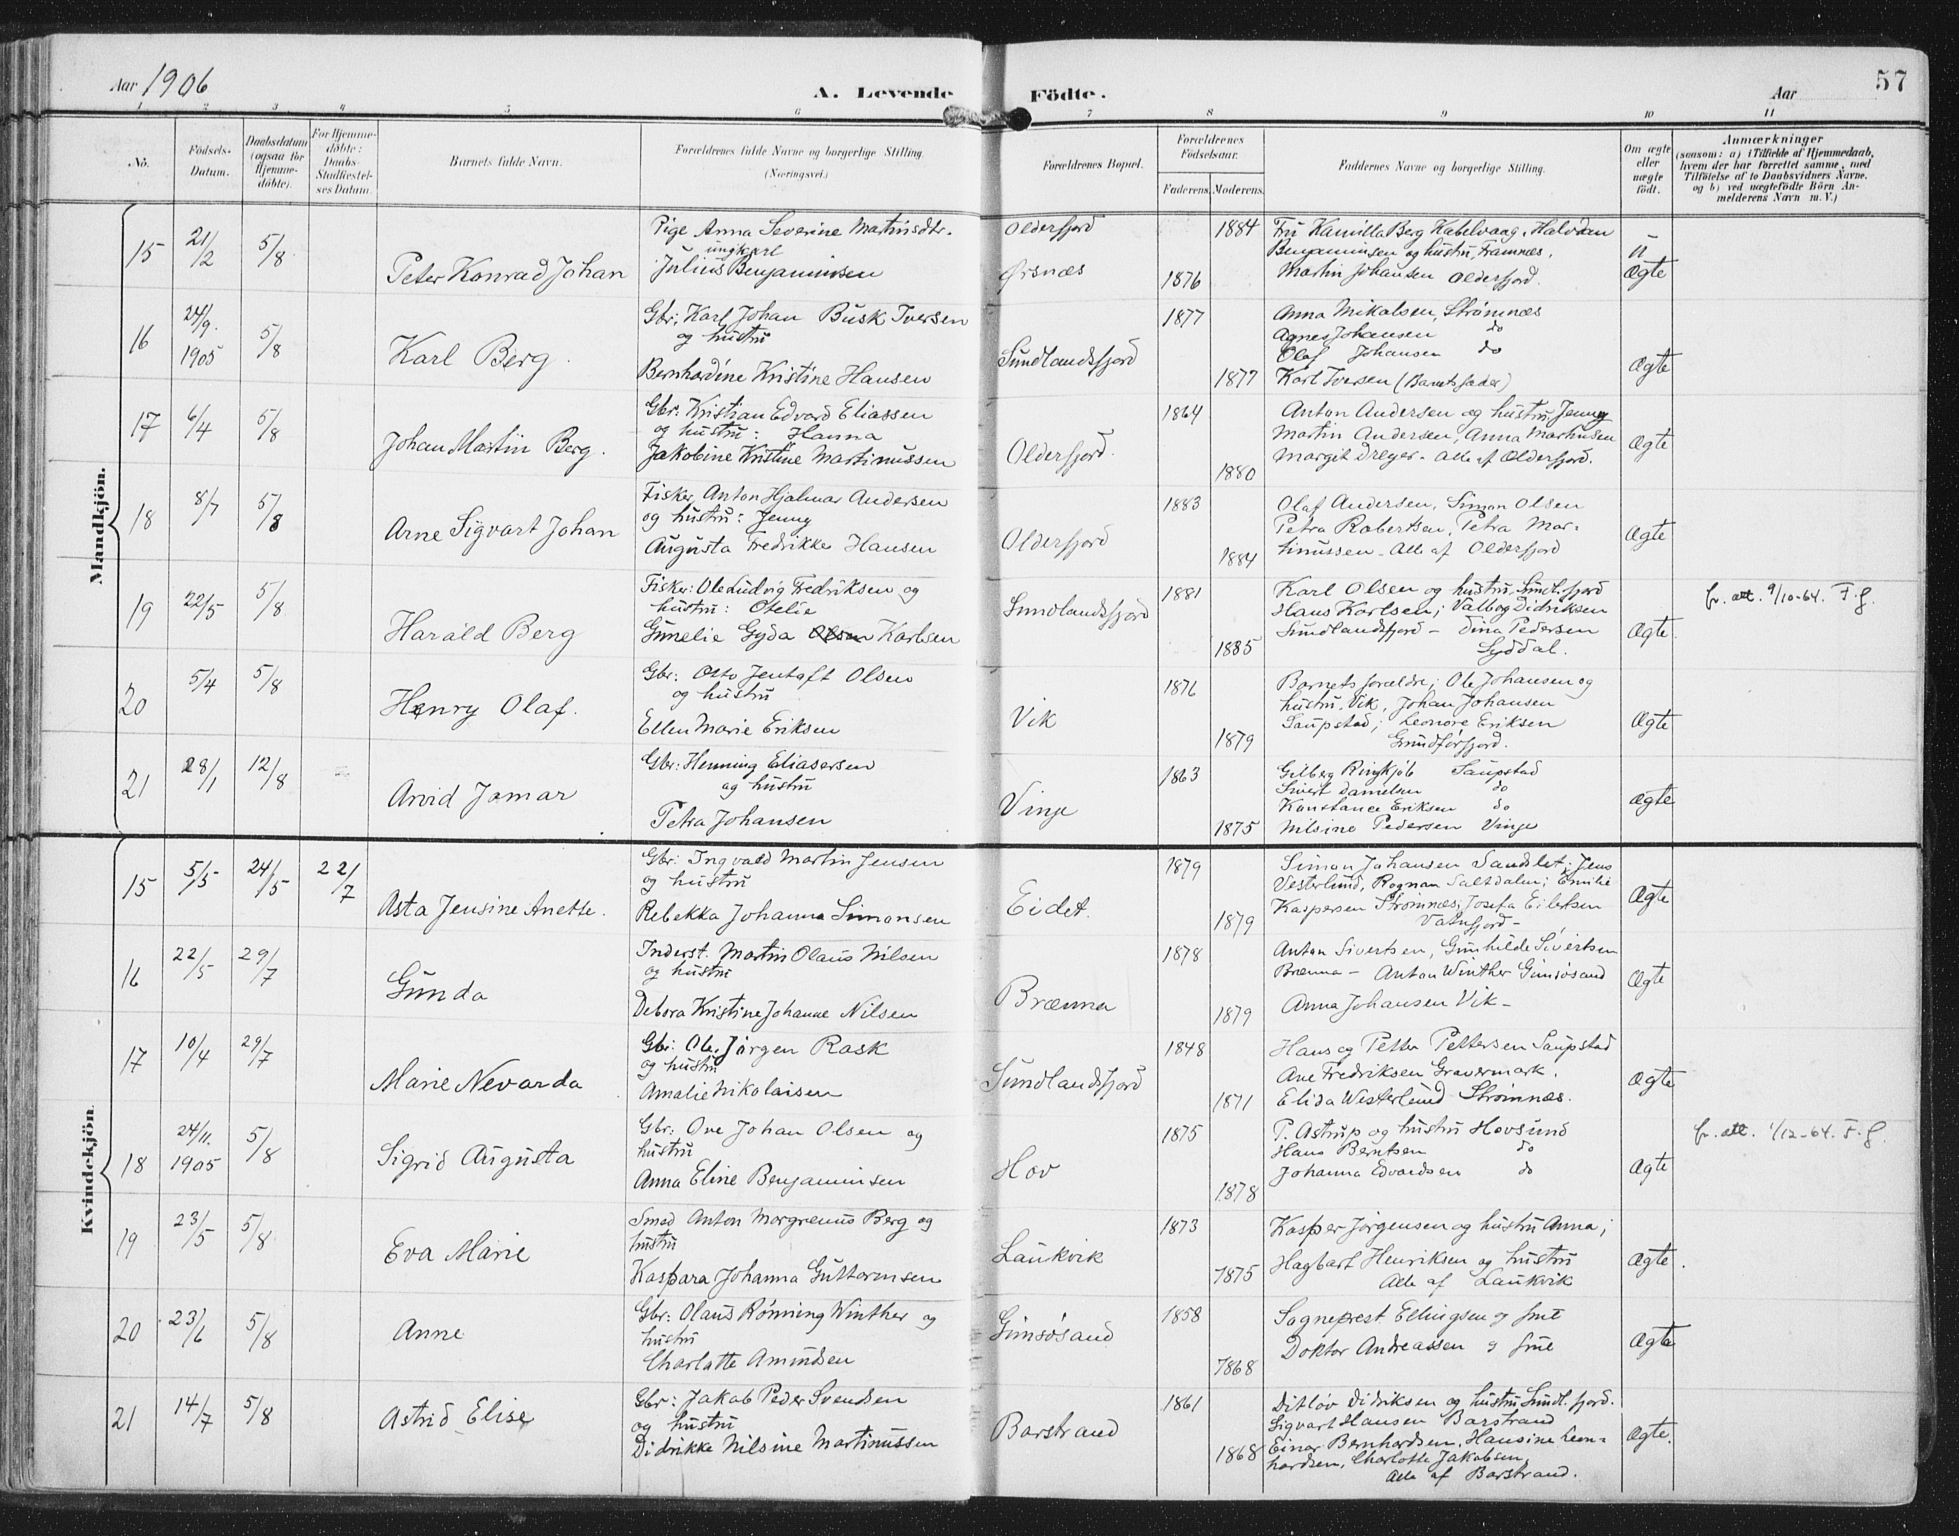 Aar 1906
A. Levende Födte.
Aar
57
1 2 3 4 5 6 7 8 9 10 11
No.
Födsels-Datum.
Daabsdatum (ogsaa for Hjemme-döbte).
For Hjemme-döbte: Daabs-Stadfæstel-ses Datum.
Barnets fulde Navn.
Forældrenes fulde Navne og borgerlige Stilling. (Næringsvei.)
Forældrenes Bopæl.
Forældrenes Födselsaar.
Faderens. Moderens.
Faddernes Navne og borgerlige Stilling.
Om ægte eller uægte födt.
Anmærkninger
(saasom: a) i Tilfælde af Hjemmedaab, hvem der har forrettet samme, med Tilföielse af to Daabsvidners Navne. og b) ved uægtefödte Börn An-melderens Navn m. V.)
Mandkjön.
15 21/2 5/8 Peter Konrad Johan
Pige Anna Severine Martinsdtr.
ungkarl
Julius Benjaminsen
Oldersfjord
Ørsnæs
1884
1876
Fru Kamilla Berg Kabelvaag, Halvdan
Benjaminsen og hustru, Framnæs.
Martin Johansen Oldersfjord.
u
Ægte
16 24/9. 1905 5/8 Karl Berg.
Gbr; Karl Johan Busk Iversen
og hustru
Bernhardine Kristine Hansen
Sundlandsfjord
1877
1877
Anna Mikalsen, Strømnæs
Agnes Johansen do
Olaf Johansen do
Karl Iversen (Barnets fader)
Ægte
17 6/4 5/8 Johan Martin Berg.
Gbr: Kristian Edvard Eliassen
og hustru: Hanna
Jakobine Kristine Martinussen
Oldersfjord.
1864
1880
Anton Andersen og hustru Jenny
Martin Andersen, Anna Martinsen
Margit Dreyer - Alle af Oldersfjord.
Ægte
18 8/7 5/8 Arne Sigvart Johan
Fisker, Anton Hjalmar Andersen
og hustru: Jenny
Augusta Fredrikke Hansen
Oldersfjord
1883
1884
Olaf Andersen, Simon Olsen
Petra Robertsen, Petra Mar-
tinussen - Alle af Oldersfjord
Ægte
19 22/5 5/8 Harald Berg
Fisker: Ole Ludvig Fredriksen og
hustru: Otelie
Gunelie Gyda Olsen Karlsen
Sundlandsfjord
1881
1885
Karl Olsen og hustru, Sundl.fjord
Hans Karlsen; Valbog Didriksen
Sundlandsfjord - Dina Pedersen
Syddal.
Ægte
fr. att. 9/10-64. F.g.
20 5/4 5/8 Henry Olaf.
Gbr: Otto Jentoft Olsen
og hustru
Ellen Marie Eriksen
Vik
1876
1879
Barnets forældre; Ole Johansen og
hustru, Vik, Johan Johansen
Saupstad; Leonore Eriksen
Grundførfjord.
Ægte
21 28/1 12/8 Arvid Jomar
Gbr: Henning Eliasersen
og hustru
Petra Johansen
Vinje
1863
1875
Gilberg Ringkjøb Saupstad
Sivert Danielsen do
Konstance Eriksen do
Nilsine Pedersen Vinje
Ægte
Kvindekjön.
15 5/5 24/5 22/7 Asta Jensine Anette.
Gbr: Ingvald Martin Jensen
og hustru
Rebekka Johanna Simonsen
Eidet.
1879
1879
Simon Johansen Sandslet; Jens
Vesterlund, Rognan Saltdalen; Emilie
Kaspersen Strømnæs; Josefa Eilertsen
Vatnfjord -
Ægte
16 22/5 29/7 Gunda
Inderst. Martin Olaus Nilsen
og hustru
Debora Kristine Johanne Nilsen
Brænna
1878
1879
Anton Sivertsen, Gunhilde Sivertsen
Brænna - Anton Winther Gimsøsand
Anna Johansen Vik -
Ægte
17 10/4 29/7 Marie Nevarda
Gbr: Ole Jørgen Rask
og hustru
Amalie Nikolaisen
Sundlandsfjord
1848
1871
Hans og Petter Pettersen Saupstad
Ane Fredriksen Gravermark.
Elida Westerlund Strømnæs.
Ægte
18 24/11. 1905 5/8 Sigrid Augusta
Gbr: Ove Johan Olsen og
hustru
Anna Eline Benjaminsen
Hov
1875
1878
P. Astrup og hustru Hovsund
Hans Berntsen do
Johanna Edvardsen do
Ægte
fr. att. 1/12-64. F.g.
19 23/5 5/8 Eva Marie
Smed Anton Margrenus Berg og
hustru
Kaspara Johanna Guttormsen
Laukvik
1873
1875
Kasper Jørgensen og hustru Anna;
Hagbart Henriksen og hustru
Alle af Laukvik
Ægte.
20 23/6 5/8 Anne
Gbr: Olaus Rønning Winther og
hustru
Charlotte Amundsen
Gimsøsand
1858
1868
Sogneprest Ellingsen og frue
Doktor Andreassen og frue
Ægte
21 14/7 5/8 Astrid Elise
Gbr: Jakob Peder Svendsen
og hustru
Didrikke Nilsine Martinussen
Barstrand
1861
1868
Ditløv Didriksen og hustru Sundl.fjord.
Sigvart Hansen Barstrand
Einar Bernhardsen, Hansine Leon-
hardsen, Charlotte Jakobsen,
Alle af Barstrand.
Ægte.